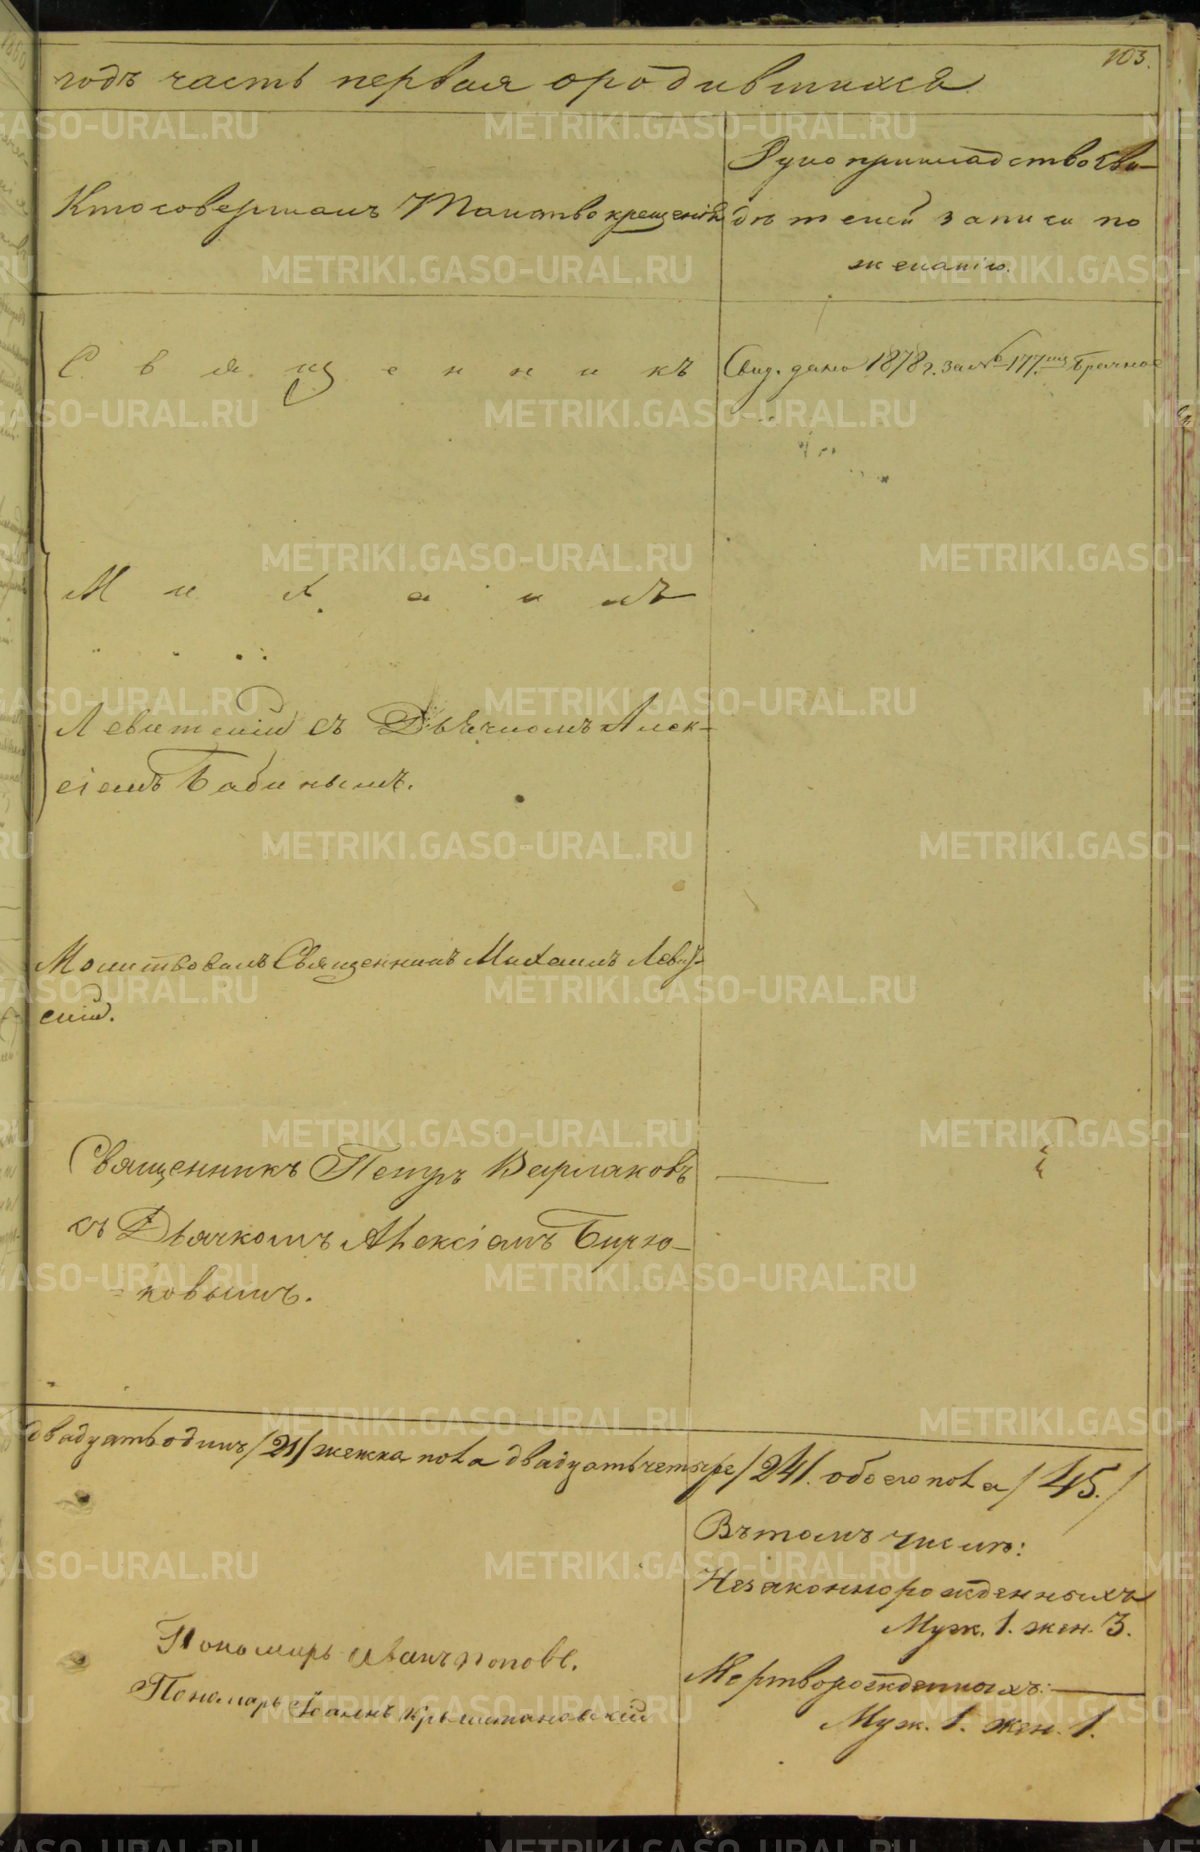 103.
годъ часть первая ородившихся
Ктосовершалъ Таинство крещенія
Рукоприкладство сви-
дѣтелей записи по
желанію.
Священникъ
Свид. дано 1878 г. за № 177. Брачное
Михаилъ
Левитскій съ Дьячкомъ Алек-
сіемъ Бабинымъ.
Молитвовалъ Священникъ Михаилъ Левит-
скій.
Священникъ Петръ Варлаковъ
съ Дьячкомъ Алексіемъ Бирю-
ковымъ.
двадцать одинъ /21/ женска пола двадцать четыре /24/. обоего пола /45./
Въ томъ числѣ:
Незаконнорожденныхъ
Муж. 1. жен. 3.
Пономарь Иванъ Поповъ.
Мертворожденныхъ:
Пономарь Іоаннъ Крыштановскій
Муж. 1. жен. 1.
METRIKI.GASO-URAL.RU